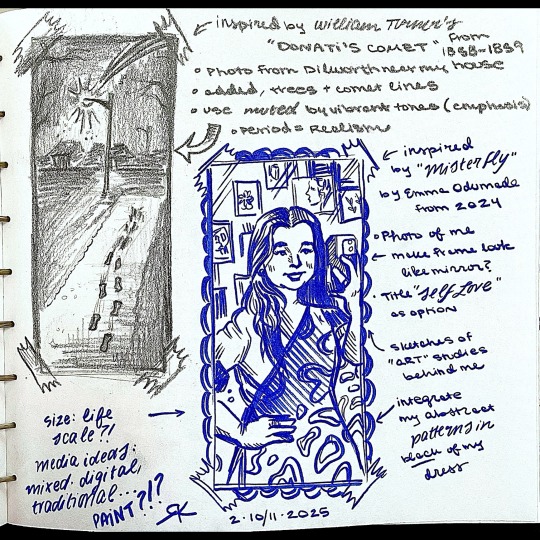 inspired by William Turner's
"DONATI'S COMET" from
1858-1859
• Photo from Dilworth near my house
• added, trees + comet lines
• use muted by vibrant tones (emphasis)
• Period = Realism
inspired
by "Misterfly"
by Emma Odumade
from 2024
• Photo of me
make frame look
like mirror?
• Title "Self Love"
as option
sketches of
"ART" studies
behind me
integrate
my abstract
patterns in
black of my
dress
size: life
scale?!
media ideas:
mixed, digital,
traditional...
PAINT?!?
SK
2·10/11·2025